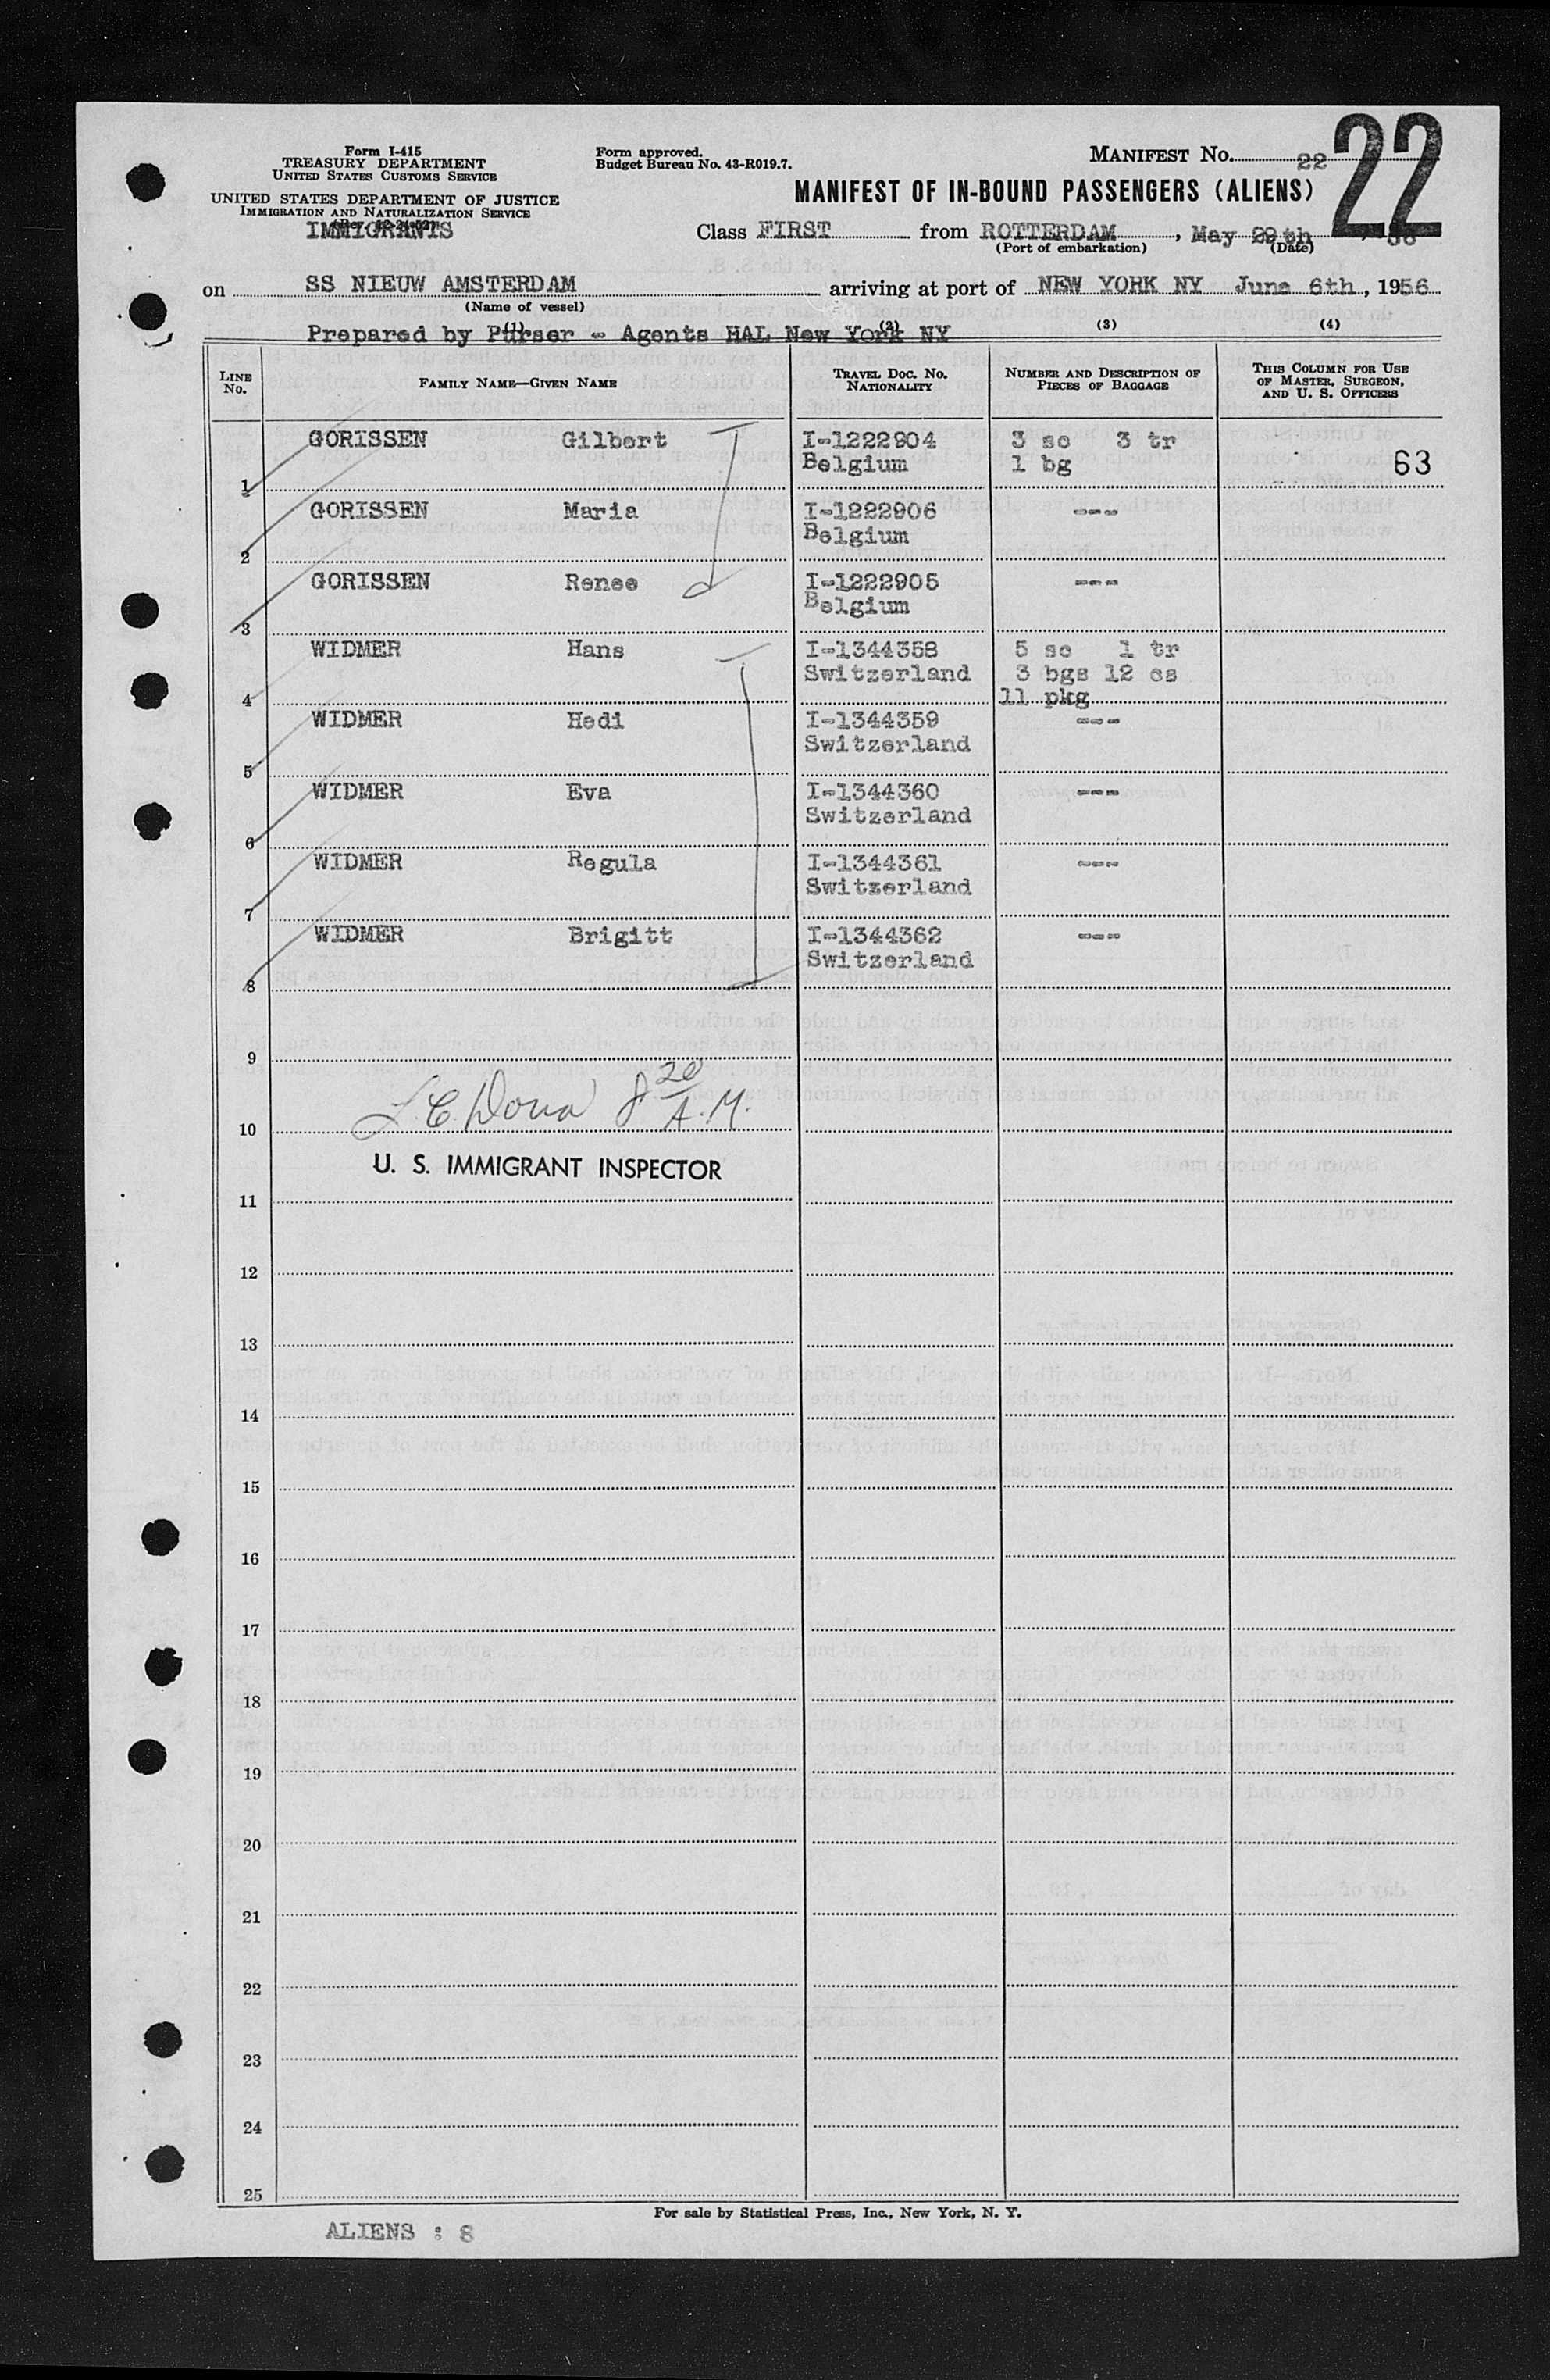 Form I-415
TREASURY DEPARTMENT
UNITED STATES CUSTOMS SERVICE
UNITED STATES DEPARTMENT OF JUSTICE
IMMIGRATION AND NATURALIZATION SERVICE
IMMIGRANTS
Form approved.
Budget Bureau No. 43-R019.7.
MANIFEST No. 22
22
MANIFEST OF IN-BOUND PASSENGERS (ALIENS)
Class FIRST from ROTTERDAM, May 29th
(Port of embarkation) (Date)
on SS NIEUW AMSTERDAM arriving at port of NEW YORK NY June 6th, 1956
(Name of vessel)
Prepared by Purser - Agents HAL New York NY
(1) (2) (3) (4)
LINE No. FAMILY NAME—GIVEN NAME TRAVEL DOC. NO. NATIONALITY NUMBER AND DESCRIPTION OF PIECES OF BAGGAGE THIS COLUMN FOR USE OF MASTER, SURGEON, AND U. S. OFFICERS
1 GORISSEN Gilbert I-1222904 3 sc 3 tr
Belgium 1 bg 63
2 GORISSEN Maria I-1222906 ---
Belgium
3 GORISSEN Renee I-1222905 ---
Belgium
4 WIDMER Hans I-1344358 5 sc 1 tr
Switzerland 3 bgs 12 cs
11 pkg
5 WIDMER Hedi I-1344359 ---
Switzerland
6 WIDMER Eva I-1344360 ---
Switzerland
7 WIDMER Regula I-1344361 ---
Switzerland
8 WIDMER Brigitt I-1344362 ---
Switzerland
9
10 8 20 A.M.
U. S. IMMIGRANT INSPECTOR
11
12
13
14
15
16
17
18
19
20
21
22
23
24
25
For sale by Statistical Press, Inc., New York, N. Y.
ALIENS : 8